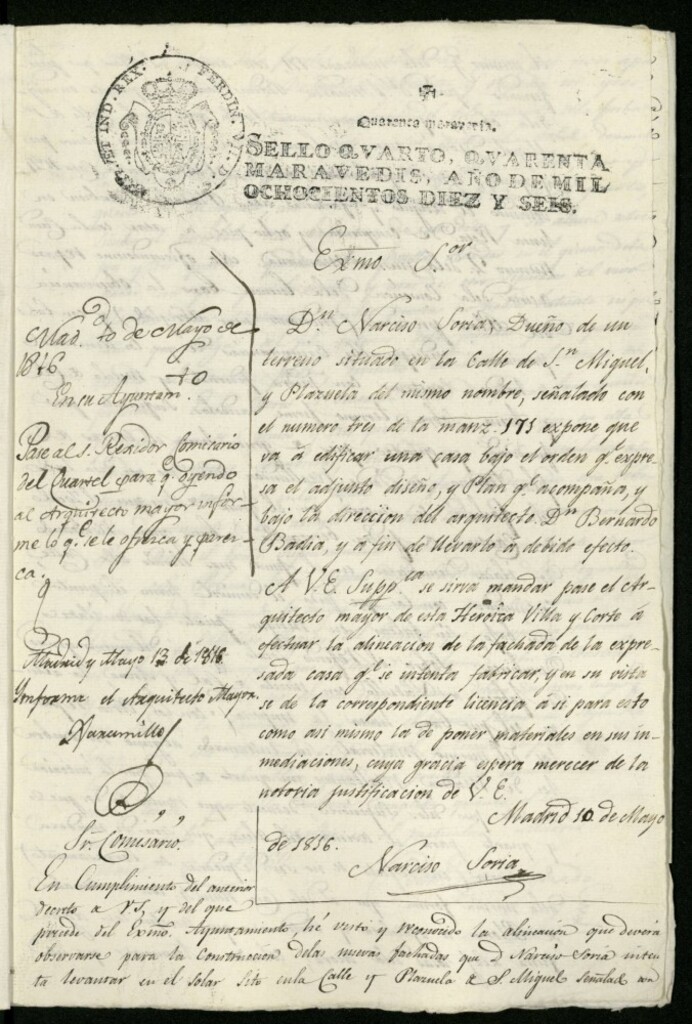 FERDIN. VII. D. G. HISP. ET IND. REX.
Quarenta maravedis.
SELLO QVARTO, QVARENTA
MARAVEDIS, AÑO DE MIL
OCHOCIENTOS DIEZ Y SEIS.
Exmo. S.or
D.n Narciso Soria, Dueño de un
terreno situado en la Calle de S.n Miguel,
y Plazuela del mismo nombre, señalado con
el numero tres de la manz. 171 expone que
va á edificar una casa bajo el orden q.e expre-
sa el adjunto diseño, y Plan q.e acompaña, y
bajo la direccion del arquitecto D.n Bernardo
Badia, y á fin de llevarlo á debido efecto.
A V.E. Supp.ca se sirva mandar pase el Ar-
quitecto mayor de esta Heroica Villa y Corte á
efectuar la alineacion de la fachada de la expre-
sada casa q.e se intenta fabricar, y en su vista
se de la correspondiente licencia á si para esto
como asi mismo la de poner materiales en sus in-
mediaciones, cuya gracia espera merecer de la
notoria justificacion de V.E.
Madrid 10 de Mayo
de 1816.
Narciso Soria
Mad.d 10 de Mayo de
1816
En su Ayuntam.to
Pase al s. Regidor Comisario
del Quartel para q.e oyendo
al Arquitecto mayor infor-
me lo q.e se le ofrezca y parez-
ca.
Madrid y Mayo 13 de 1816.
Ynforme el Arquitecto Mayor.
Sr. Comisario.
En Cumplimiento del anterior
decreto de V.S, y del que
precede del Exmo. Ayuntamiento, hé visto y reconocido la alineacion que deverá
observarse para la Construccion de las nuevas fachadas que d. Narciso Soria inten-
ta levantar en el solar sito en la Calle y Plazuela de S. Miguel señalado con